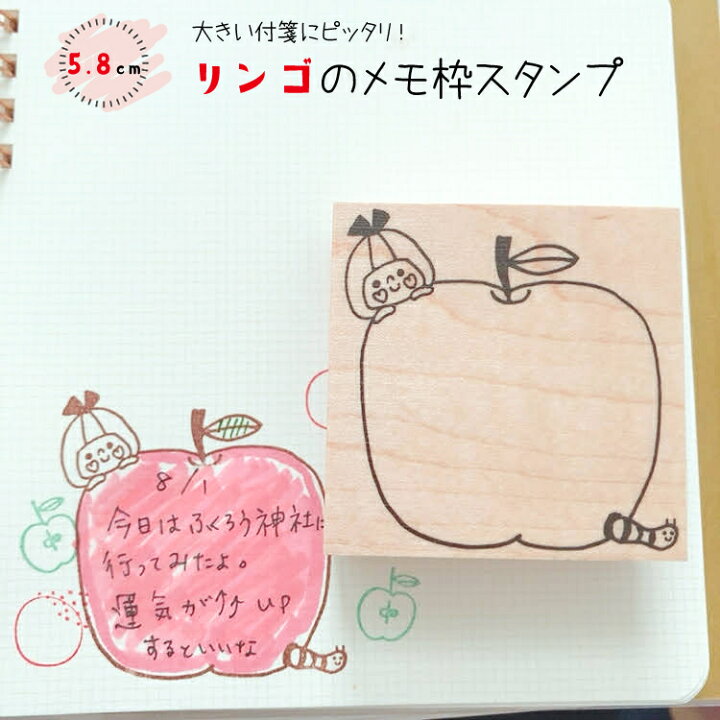 大きい付箋にピッタリ!
5.8cm
リンゴのメモ枠スタンプ
8/1
今日はふくろう神社に
行ってみたよ。
運気が↑↑up
するといいな